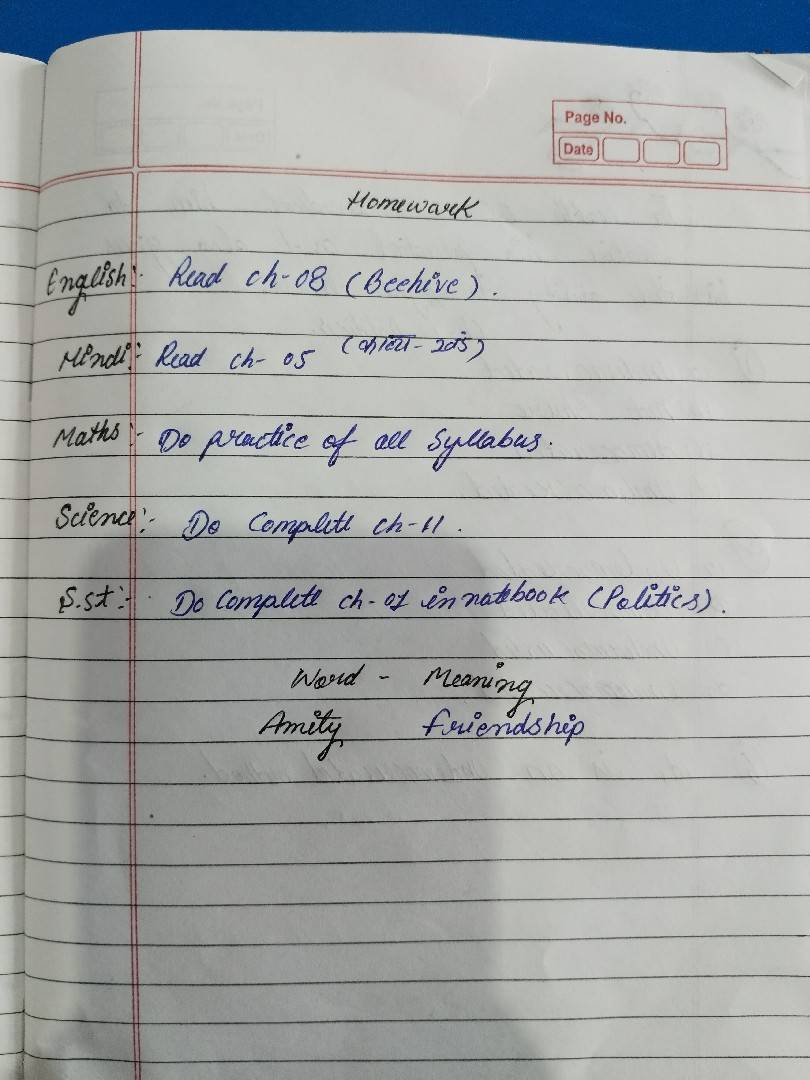 Page No.
Date
Homework
English:- Read ch-08 (Beehive).
Hindi:- Read ch- 05 (काव्य - खंड)
Maths:- Do practice of all Syllabus.
Science:- Do Complete ch-11.
S.st:- Do Complete ch-01 in notebook (Politics).
Word - Meaning
Amity friendship